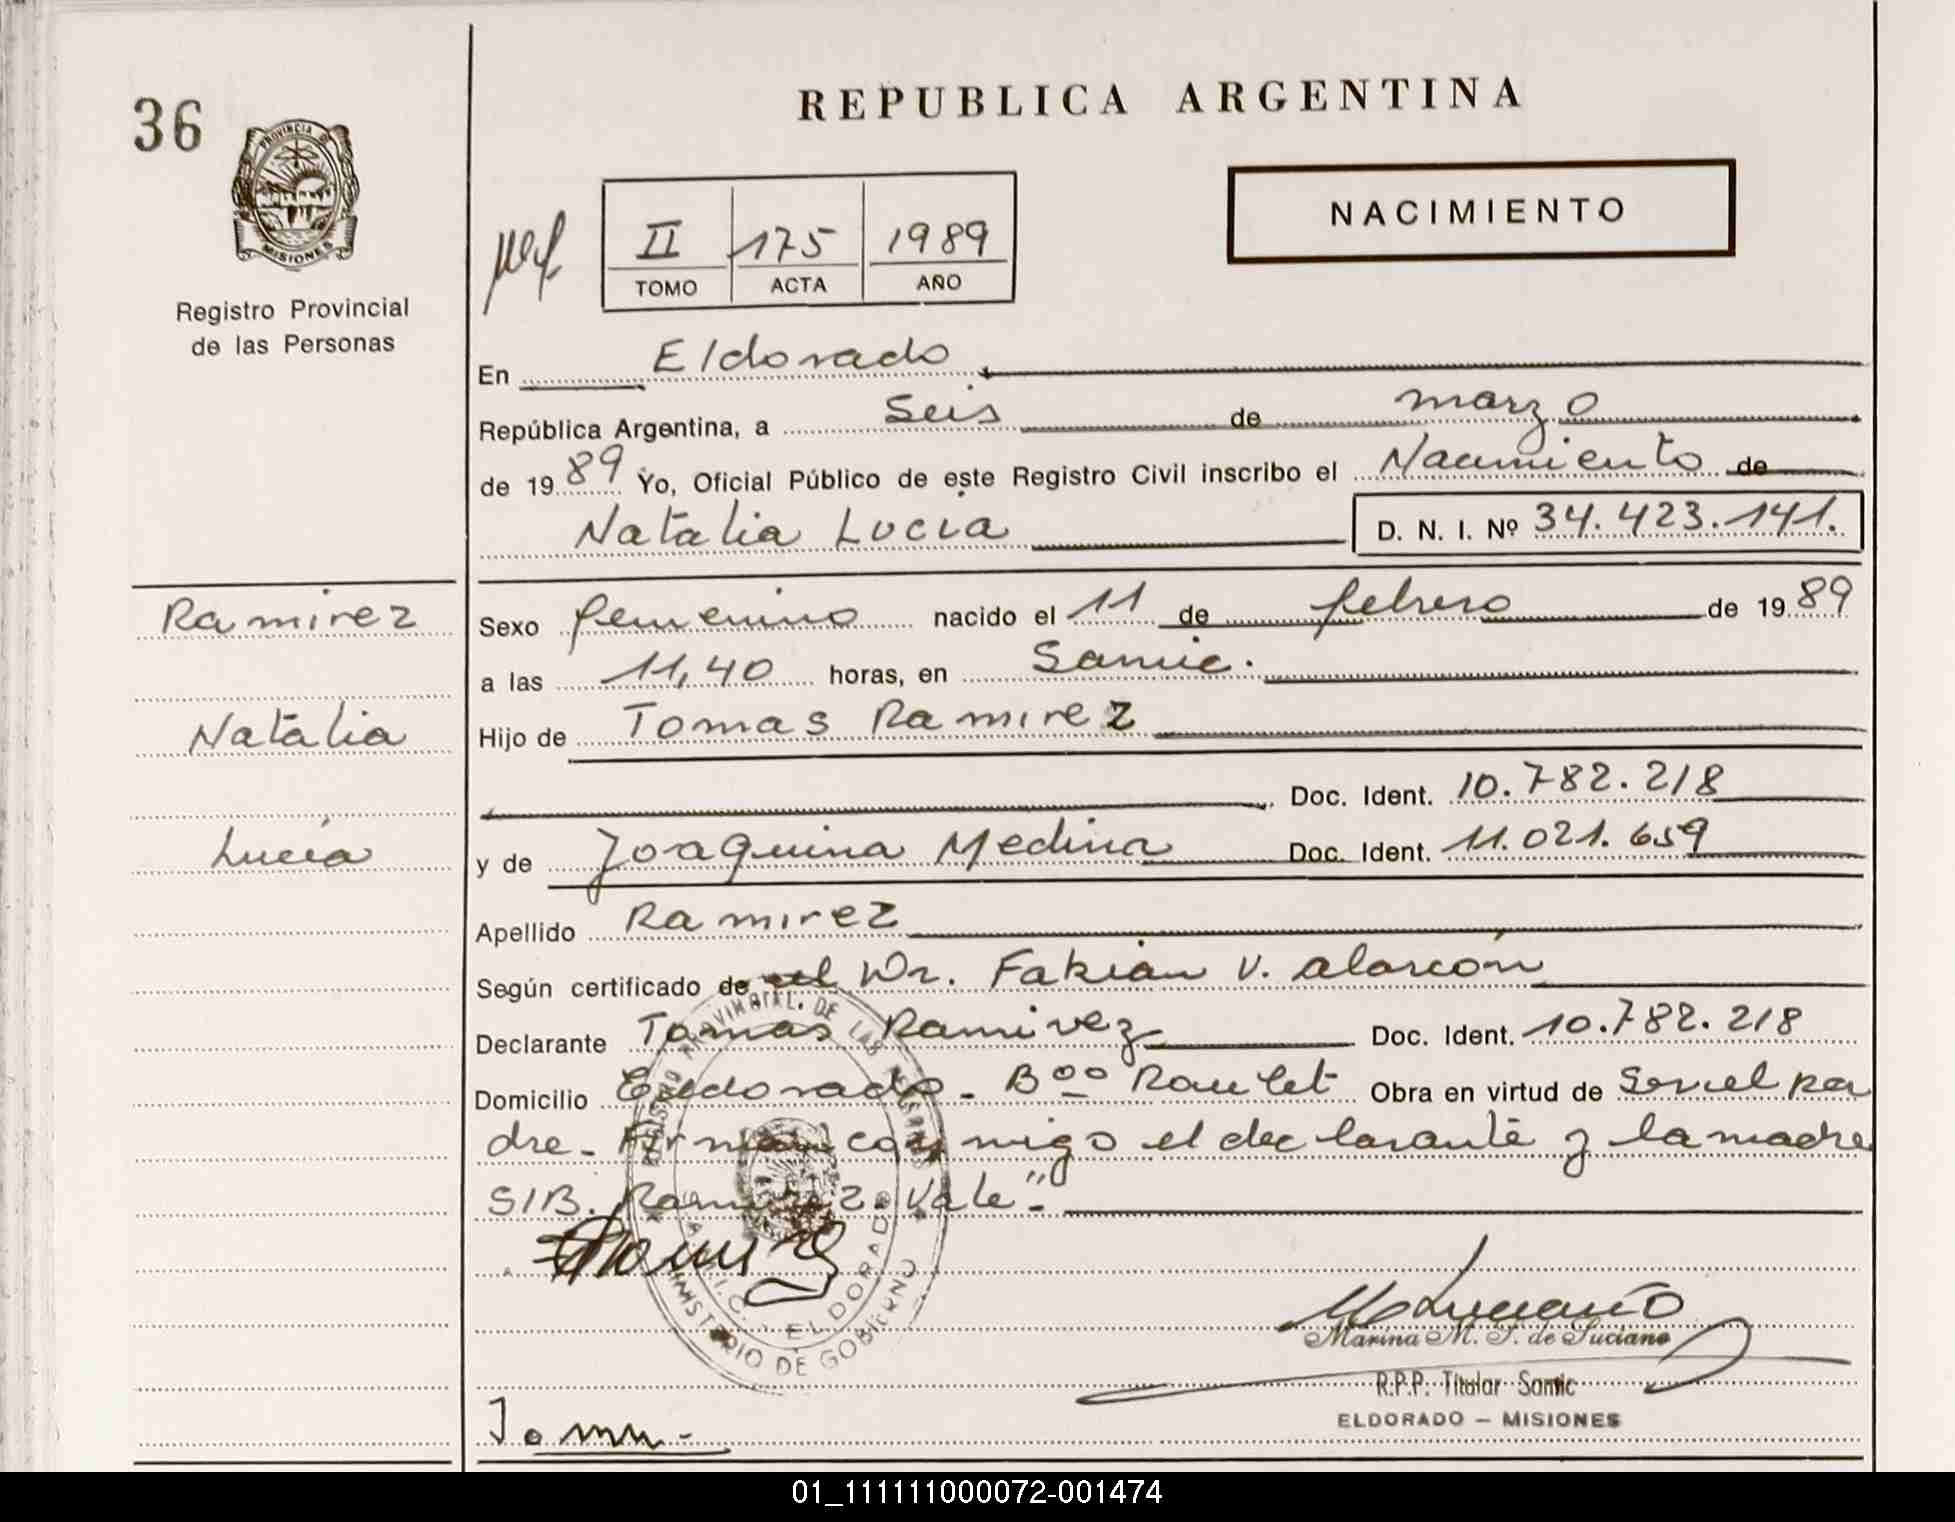 36
PROVINCIA D
MISIONES
Registro Provincial
de las Personas
REPUBLICA ARGENTINA
NACIMIENTO
II 175 1989
TOMO ACTA AÑO
En Eldorado
República Argentina, a Seis de marzo
de 1989 Yo, Oficial Público de este Registro Civil inscribo el Nacimiento de
Natalia Lucia D. N. I. Nº 34.423.141.
Ramirez
Natalia
Lucía
Sexo femenino nacido el 11 de febrero de 1989
a las 11,40 horas, en Samic.
Hijo de Tomas Ramirez
Doc. Ident. 10.782.218
y de Joaquina Medina Doc. Ident. 11.021.659
Apellido Ramirez
Según certificado de el Dr. Fabián V. Alarcón
Declarante Tomas Ramirez Doc. Ident. 10.782.218
Domicilio Eldorado - Bºº Roulet Obra en virtud de Ser el pa
dre - Firman conmigo el declarante y la madre
S/B. Ramirez. Vale"-
REGISTRO PROVINCIAL DE LAS PERSONAS
ELDORADO
MINISTERIO DE GOBIERNO
Marina M. S. de Luciano
R.P.P. Titular Samic
ELDORADO – MISIONES
01_111111000072-001474